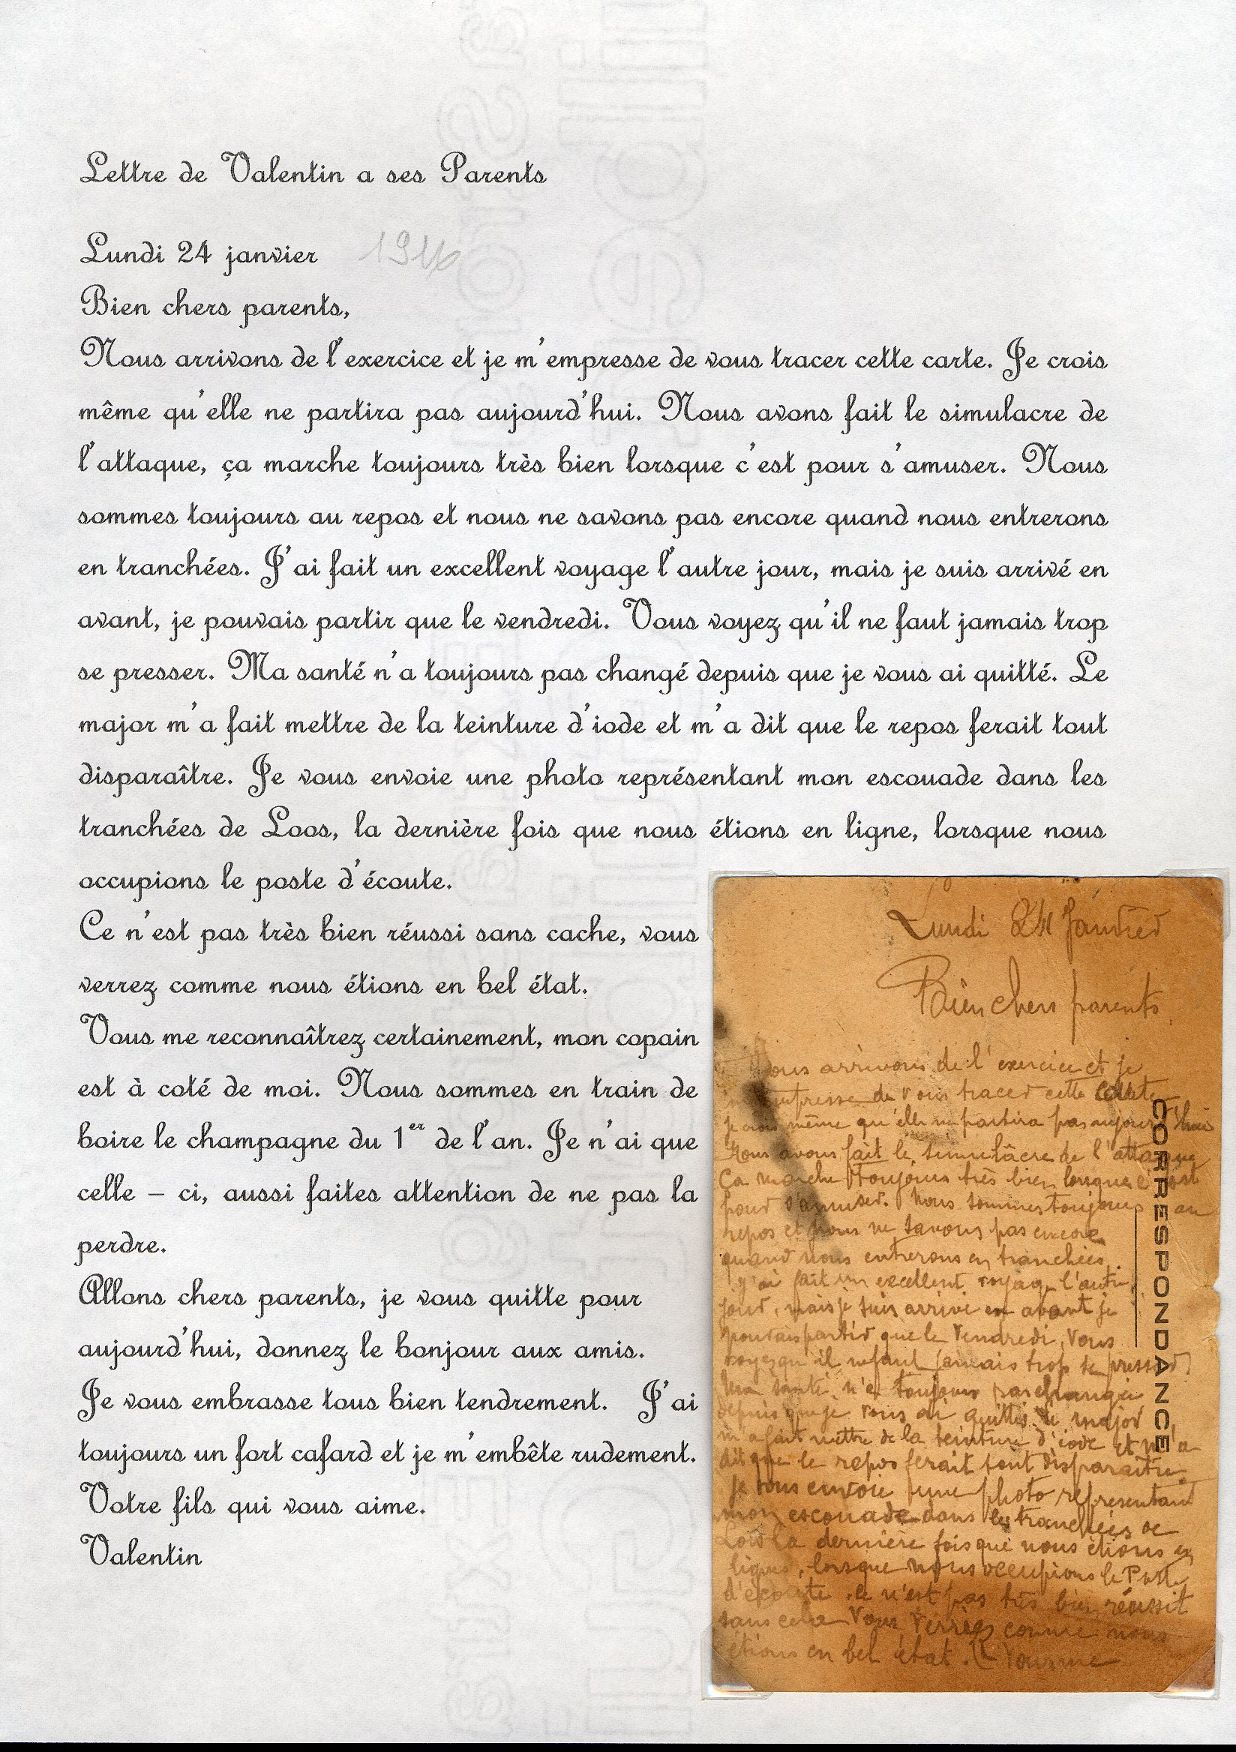 Lettre de Valentin a ses Parents
Lundi 24 janvier 1916
Bien chers parents,
Nous arrivons de l'exercice et je m'empresse de vous tracer cette carte. Je crois
même qu'elle ne partira pas aujourd'hui. Nous avons fait le simulacre de
l'attaque, ça marche toujours très bien lorsque c'est pour s'amuser. Nous
sommes toujours au repos et nous ne savons pas encore quand nous entrerons
en tranchées. J'ai fait un excellent voyage l'autre jour, mais je suis arrivé en
avant, je pouvais partir que le vendredi. Vous voyez qu'il ne faut jamais trop
se presser. Ma santé n'a toujours pas changé depuis que je vous ai quitté. Le
major m'a fait mettre de la teinture d'iode et m'a dit que le repos ferait tout
disparaître. Je vous envoie une photo représentant mon escouade dans les
tranchées de Loos, la dernière fois que nous étions en ligne, lorsque nous
occupions le poste d'écoute.
Ce n'est pas très bien réussi sans cache, vous
verrez comme nous étions en bel état.
Vous me reconnaîtrez certainement, mon copain
est à coté de moi. Nous sommes en train de
boire le champagne du 1er de l'an. Je n'ai que
celle – ci, aussi faites attention de ne pas la
perdre.
Allons chers parents, je vous quitte pour
aujourd'hui, donnez le bonjour aux amis.
Je vous embrasse tous bien tendrement. J'ai
toujours un fort cafard et je m'embête rudement.
Votre fils qui vous aime.
Valentin
Lundi 24 Janvier
Bien chers parents
Nous arrivons de l'exercice et je
m'empresse de vous tracer cette carte
je crois même qu'elle ne partira pas aujourd'hui
Nous avons fait le simulâcre de l'attaque
Ça marche toujours très bien lorsque c'est
pour s'amuser. Nous sommes toujours au
repos et nous ne savons pas encore
quand nous entrerons en tranchées.
J'ai fait un excellent voyage l'autre
jour, mais je suis arrivé en avant je
pouvais partir que le Vendredi, Vous
voyez qu'il ne faut jamais trop se presser
Ma santé n'a toujours pas changée
depuis que je vous ai quittés. Le major
m'a fait mettre de la teinture d'iode et m'a
dit que le repos ferait tout disparaitre.
Je vous envoie une photo représentant
mon escouade dans les tranchées de
Loos la dernière fois que nous étions en
ligne, lorsque nous occupions le Poste
d'écoute. Ce n'est pas très bien réussit
sans cela Vous verriez comme nous
étions en bel état. Vous me
CORRESPONDANCE